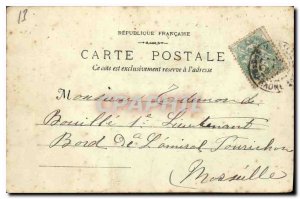 18
RÉPUBLIQUE FRANÇAISE
CARTE POSTALE
Ce côté est exclusivement réservé à l'adresse
Monsieur
Bouillé 1er Lieutenant
Bord de l'amiral
Marseille